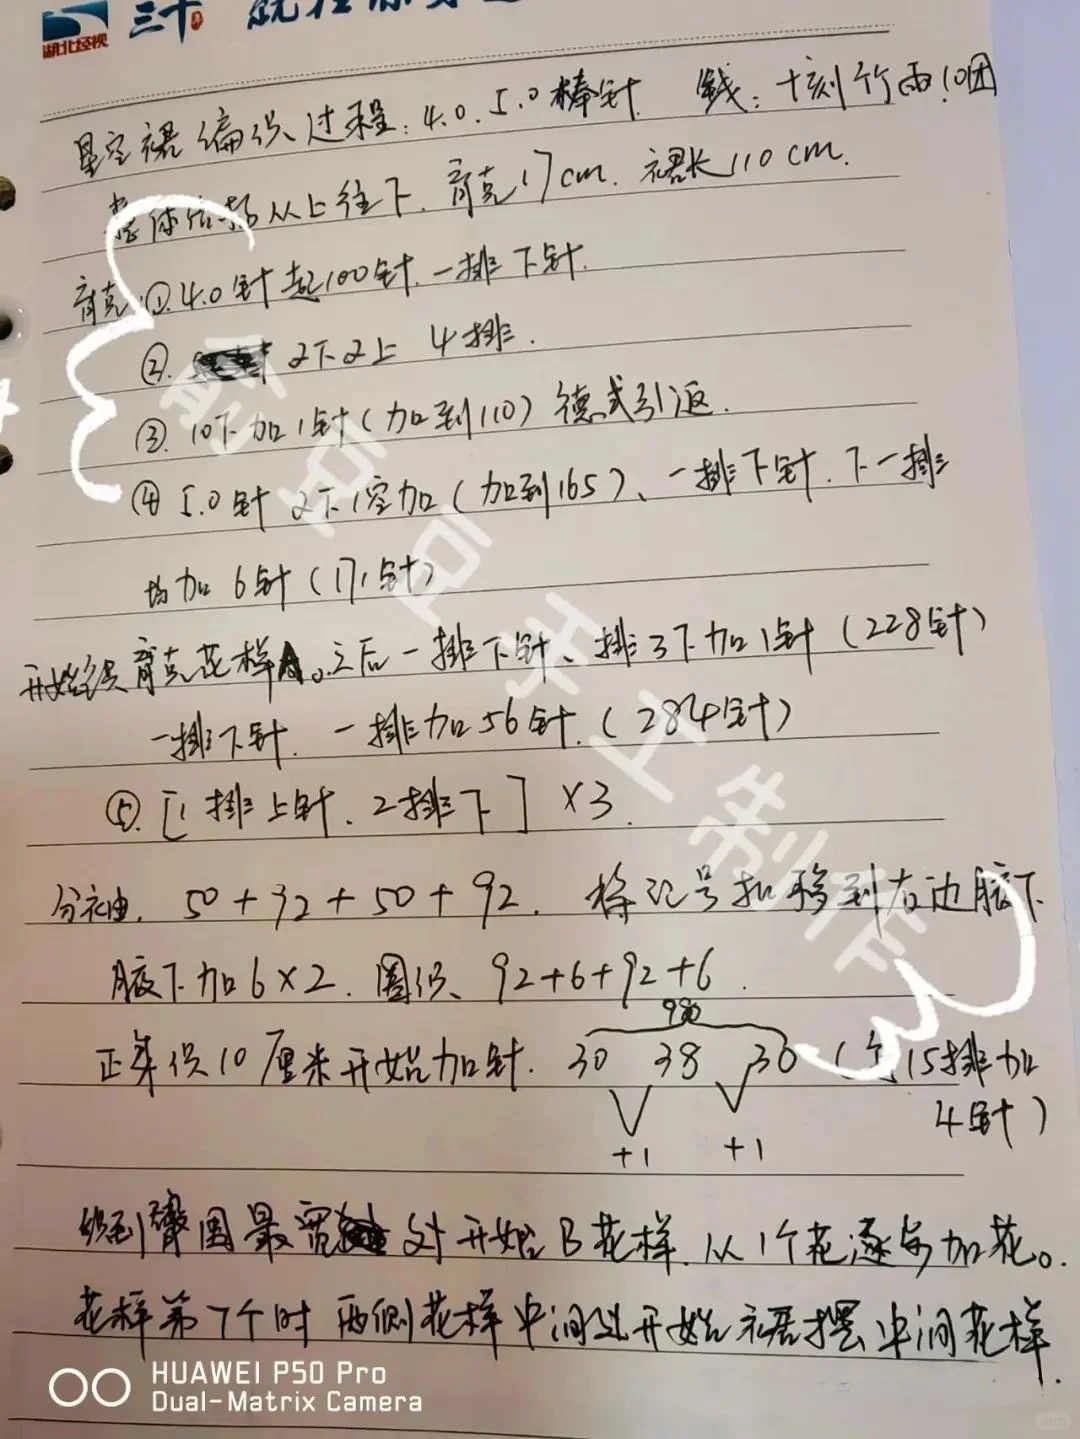 湖北经视
三十年
星空裙编织过程:4.0.5.0棒针 线:十刻竹雨10团
整体结构从上往下.育克17cm.裙长110cm.
育克①.4.0针起100针.一排下针.
②. 2下2上 4排.
③.10下加1针(加到110)德式引返.
④ 5.0针 2下1空加(加到165)、一排下针.下一排
均加6针(171针)
开始织育克花样A。之后一排下针、一排3下加1针(228针)
一排下针.一排加56针.(284针)
⑤.[1排上针.2排下]×3
分袖.50+92+50+92.将记号扣移到右边腋下
腋下加6×2.圈织、92+6+92+6.
98
正身织10厘米开始加针.30 38 30(每15排加
4针)
+1 +1
织到臀围最宽处开始B花样.从1个花逐步加花。
花样第7个时两侧花样中间处开始裙摆中间花样.
剪豆豆手工制作
HUAWEI P50 Pro
Dual-Matrix Camera